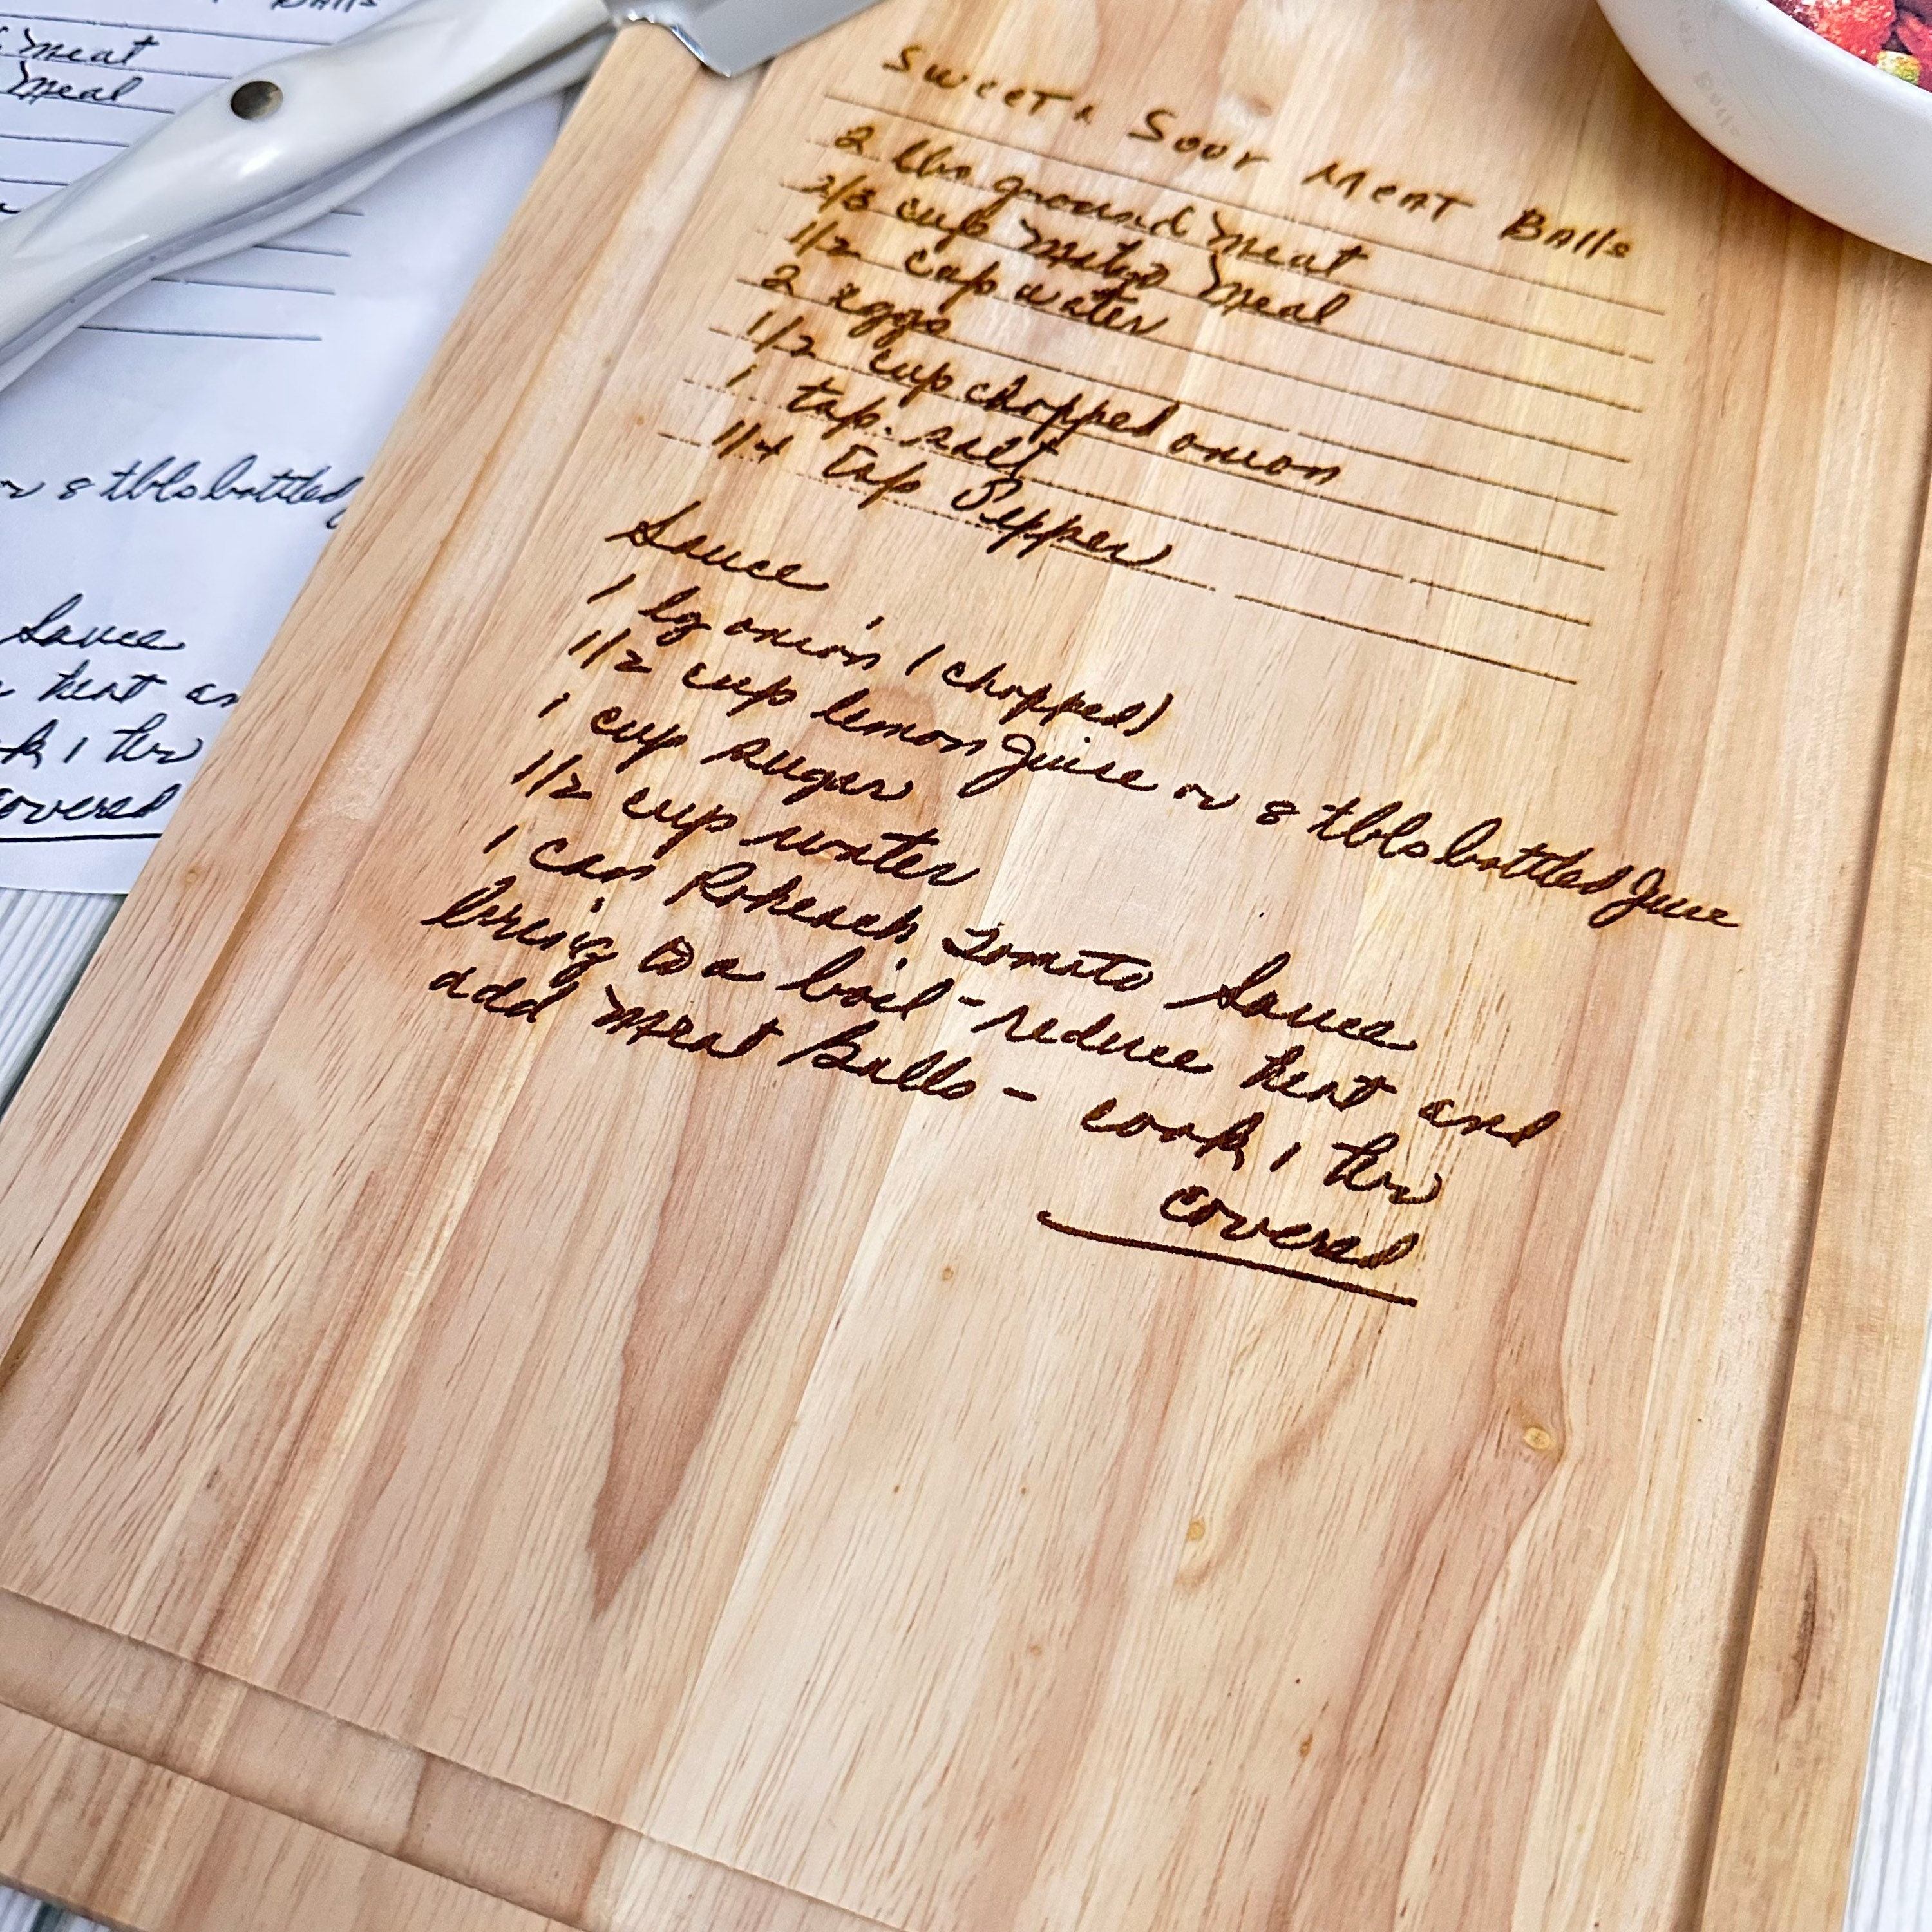 Balls
Meat
Meal
or 8 tbls bottled
Sauce
heat an
1 hr
covered
Sweet & Sour Meat Balls
2 lbs ground Meat
2/3 cup Matzo Meal
1/2 cup water
2 eggs
1/2 cup chopped onion
1 tsp. salt
1/4 tsp Pepper
Sauce
1 lg onion (chopped)
1/2 cup lemon Juice or 8 tbls bottled Juice
1 cup sugar
1/2 cup water
1 can Rokeach Tomato Sauce
bring to a boil - reduce heat and
add Meat Balls - cook 1 hr
covered